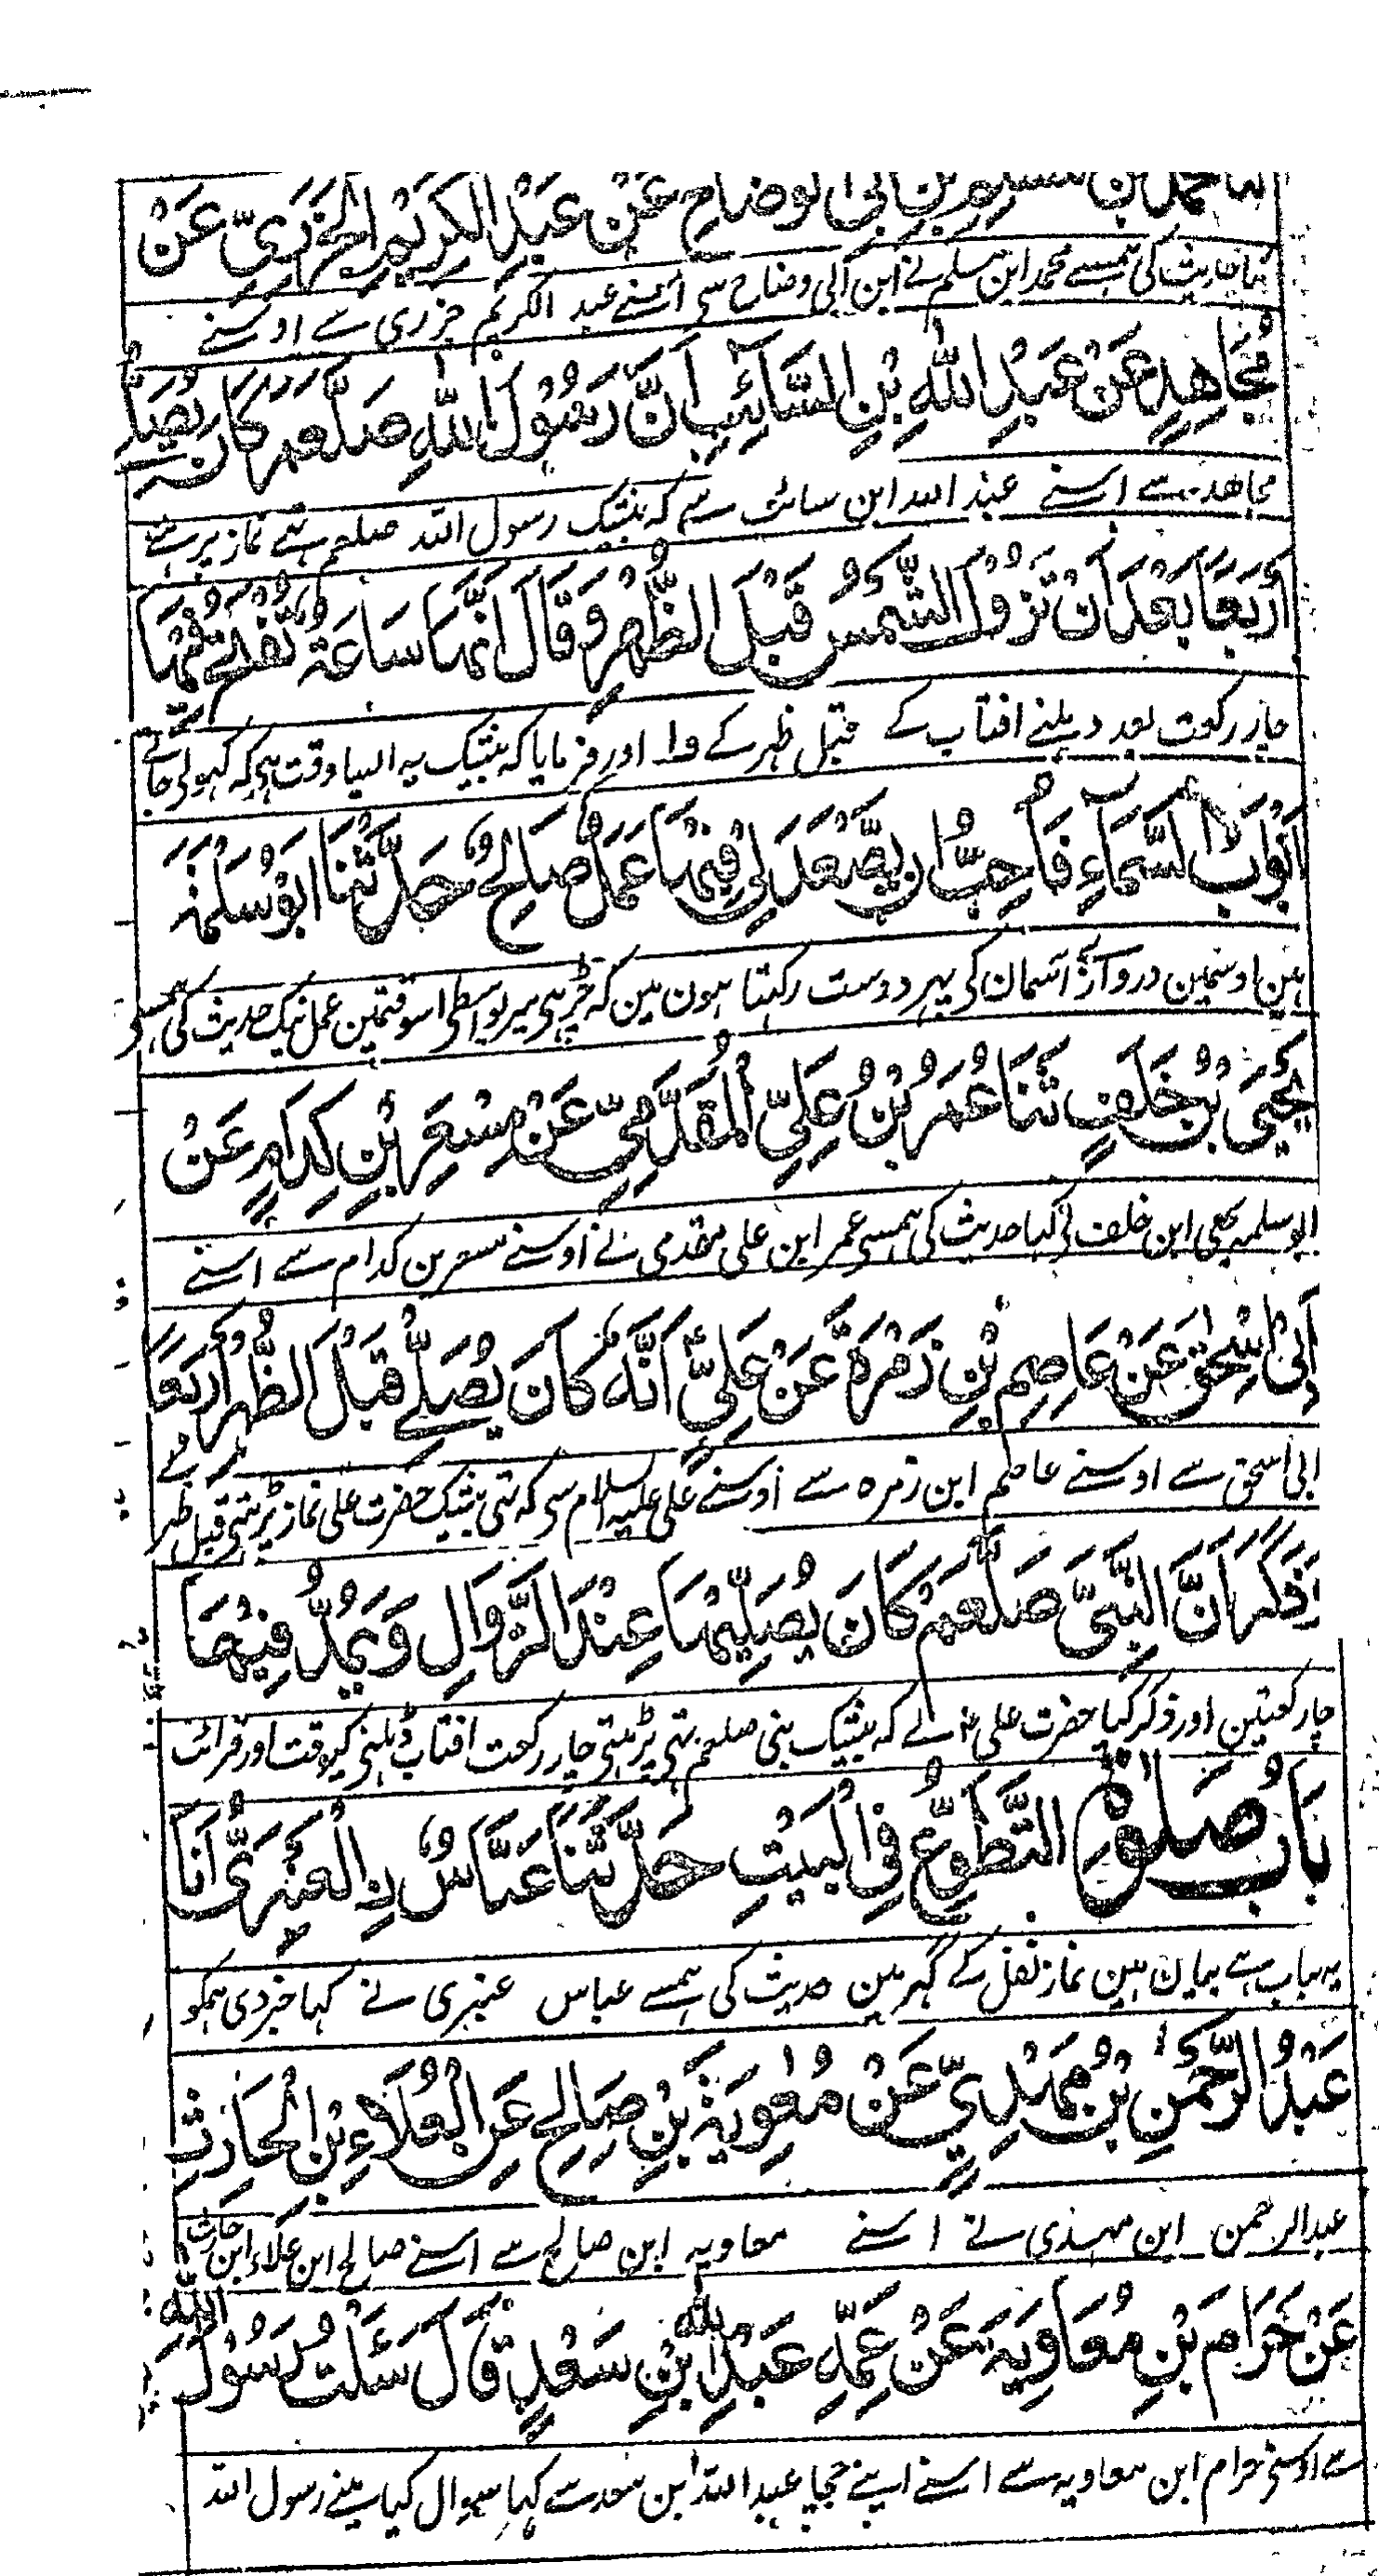 ثنا محمد بن مسلم بن أبي الوضاح عَنْ عَبْدِ الْكَرِيْمِ الْجَزَرِيِّ عَنْ
کہا حدیث کی ہمسے محمد ابن مسلم نے ابن ابی وضاح سی اسنے عبد الکریم جزری سے اوسنے
مُجَاهِدٍ عَنْ عَبْدِ اللّٰهِ بْنِ السَّآئِبِ اَنَّ رَسُوْلَ اللّٰهِ صَلَّعم كَانَ يُصَلِّيْ
مجاهد سے اسنے عبد اللہ ابن سائب سے کہ بیشک رسول اللہ صلعم تہے نماز پڑہتے
اَرْبَعًا بَعْدَ اَنْ تَزُوْلَ الشَّمْسُ قَبْلَ الظُّهْرِ وَقَالَ اِنَّهَا سَاعَةٌ تُفْتَحُ فِيْهَا
چار رکعت بعد ڈہلنے افتاب کے قبل ظہر کے اور فرمایا کہ بیشک یہ ایسا وقت ہی کہ کہولی جاتے
اَبْوَابُ السَّمَآءِ فَاُحِبُّ اَنْ يَّصْعَدَ لِيْ فِيْهَا عَمَلٌ صَالِحٌ حَدَّثَنَا اَبُوْ سَلَمَةَ
ہین اوسمین دروازے آسمان کی پہر دوست رکہتا ہون مین کہ چڑہی میر یواسطی اسوقتمین عمل نیک حدیث کی ہمسی
يَحْيَى بْنُ خَلَفٍ ثَنَا عُمَرُ بْنُ عَلِيِّ الْمُقَدَّمِيُّ عَنْ مِسْعَرِ بْنِ كِدَامٍ عَنْ
ابو سلمہ یحی ابن خلف نے کہا حدیث کی ہمسی عمر ابن علی مقدمی نے اوسنے مسعر بن کدام سے اسنے
اَبِيْ اِسْحٰقَ عَنْ عَاصِمِ بْنِ ضَمْرَةَ عَنْ عَلِيٍّ اَنَّهٗ كَانَ يُصَلِّيْ قَبْلَ الظُّهْرِ اَرْبَعًا
ابی اسحق سے اوسنے عاصم ابن زمرہ سے اوسنے علی علیہ السلام سی کہ تہی بیشک حضرت علی نماز پڑہتی قبل ظہر کے
وَذَكَرَ اَنَّ النَّبِيَّ صَلَّعم كَانَ يُصَلِّيْهَا عِنْدَ الزَّوَالِ وَيَمُدُّ فِيْهَا
چار رکعتین اور ذکر کیا حضرت علی نے کہ بیشک نبی صلعم تہی پڑہتی چار رکعت افتاب ڈہلنی کیوقت اور قرائت
بَابُ صَلٰوةِ التَّطَوُّعِ فِي الْبَيْتِ حَدَّثَنَا عَبَّاسُ نِ الْعَنْبَرِيُّ اَنَا
یہ باب ہے بیان مین نماز نفل کے گہر مین حدیث کی ہمسے عباس عنبری نے کہا خبر دی ہمکو
عَبْدُ الرَّحْمٰنِ بْنُ مَهْدِيٍّ عَنْ مُعٰوِيَةَ بْنِ صَالِحٍ عَنِ الْعَلَاءِ بْنِ الْحَارِثِ
عبد الرحمن ابن مہدی نے اسنے معاویہ ابن صالح سے اسنے صالح ابن علاء ابن حارث
عَنْ حَرَامِ بْنِ مُعَاوِيَةَ عَنْ عَمِّهٖ عَبْدِ اللّٰهِ بْنِ سَعْدٍ قَالَ سَئَلْتُ رَسُوْلَ اللّٰهِ
سے اوسنی حرام ابن معاویہ سے اسنے اپنے چچا عبد اللہ ابن سعد سے کہا سوال کیا مینے رسول اللہ